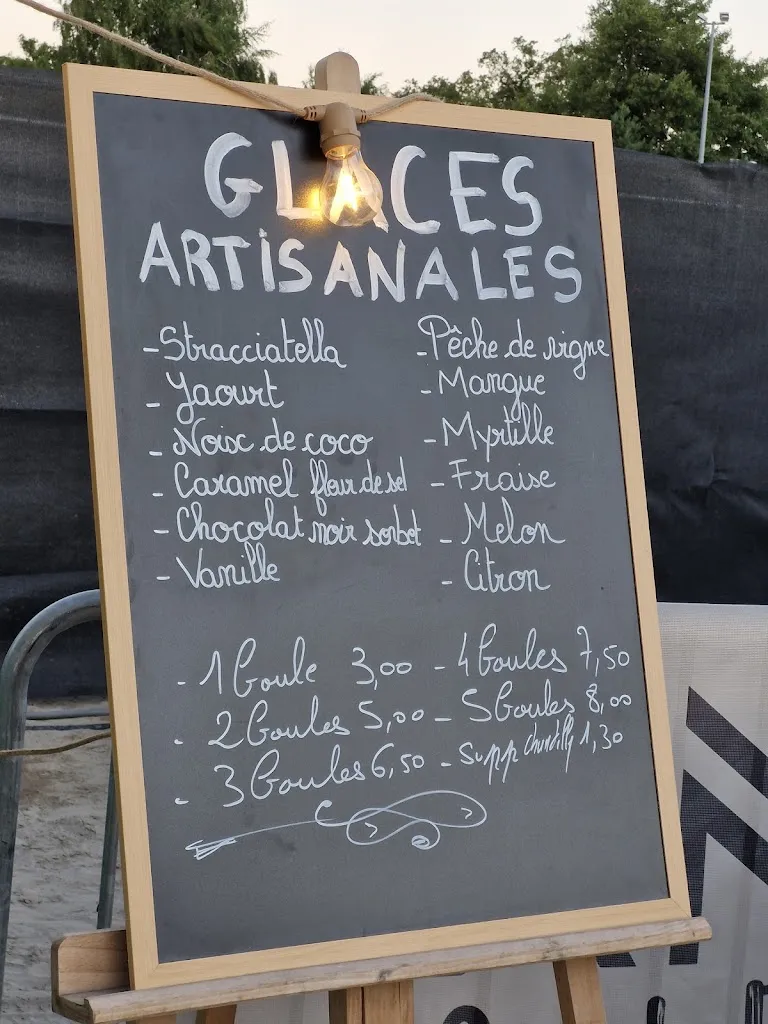 GLACES
ARTISANALES
- Stracciatella
- Yaourt
- Noix de coco
- Caramel fleur de sel
- Chocolat noir sorbet
- Vanille
- Pêche de vigne
- Mangue
- Myrtille
- Fraise
- Melon
- Citron
- 1 boule 3,00
- 2 boules 5,00
- 3 boules 6,50
- 4 boules 7,50
- 5 boules 8,00
- supp chantilly 1,30